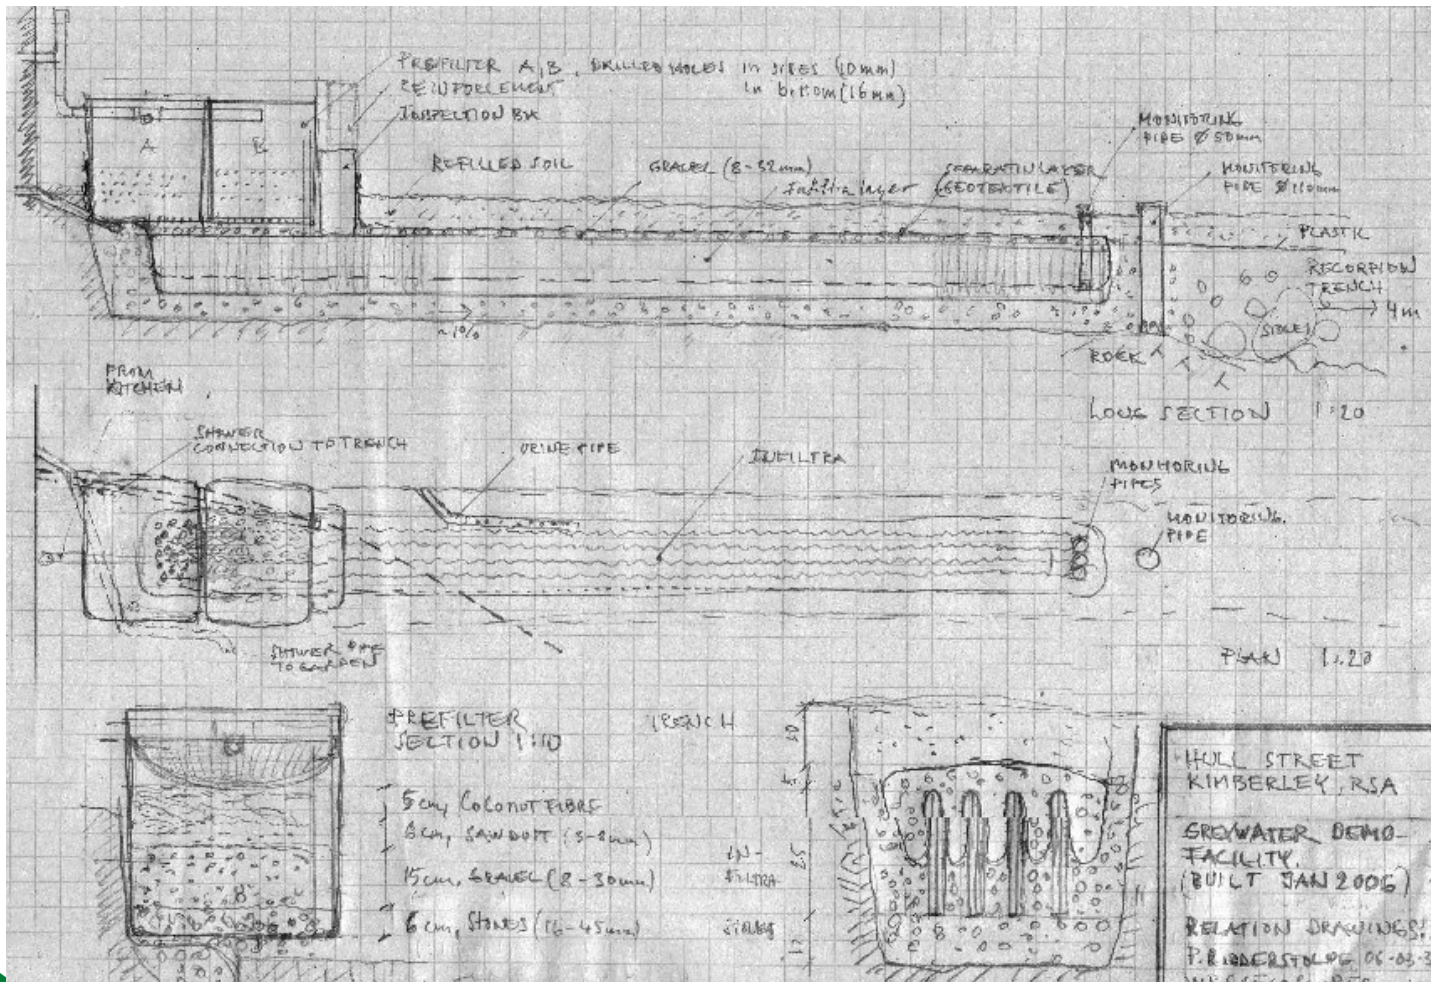 PREFILTER A,B, DRILLED HOLES in SIDES (10mm)
in bottom (16mm)
REINFORCEMENT
INSPECTION BOX
A
B
REFILLED SOIL
GRAVEL (8-32mm)
Infiltra layer
SEPARATIN LAYER
(GEOTEXTILE)
MONITORING
PIPE Ø 50mm
MONITERING
PIPE Ø 110mm
PLASTIC
TRENCH
4m
~1%
ROCK
LONG SECTION 1:20
FROM
KITCHEN
SHOWER
CONNECTION TO TRENCH
URINE PIPE
INFILTRA
MONITORING
PIPES
MONITORING
PIPE
SHOWER PIPE
TO GARDEN
PLAN 1:20
PREFILTER
SECTION 1:10
TRENCH
5cm, COCONUT FIBRE
SAWDUST
15cm, GRAVEL (8-30mm)
6cm, STONES (16-45mm)
IN-
FILTRA
HULL STREET
KIMBERLEY, RSA
GREYWATER DEMO-
FACILITY,
(BUILT JAN 2006)
RELATION DRAWINGS:
P. RIDDERSTOLPE